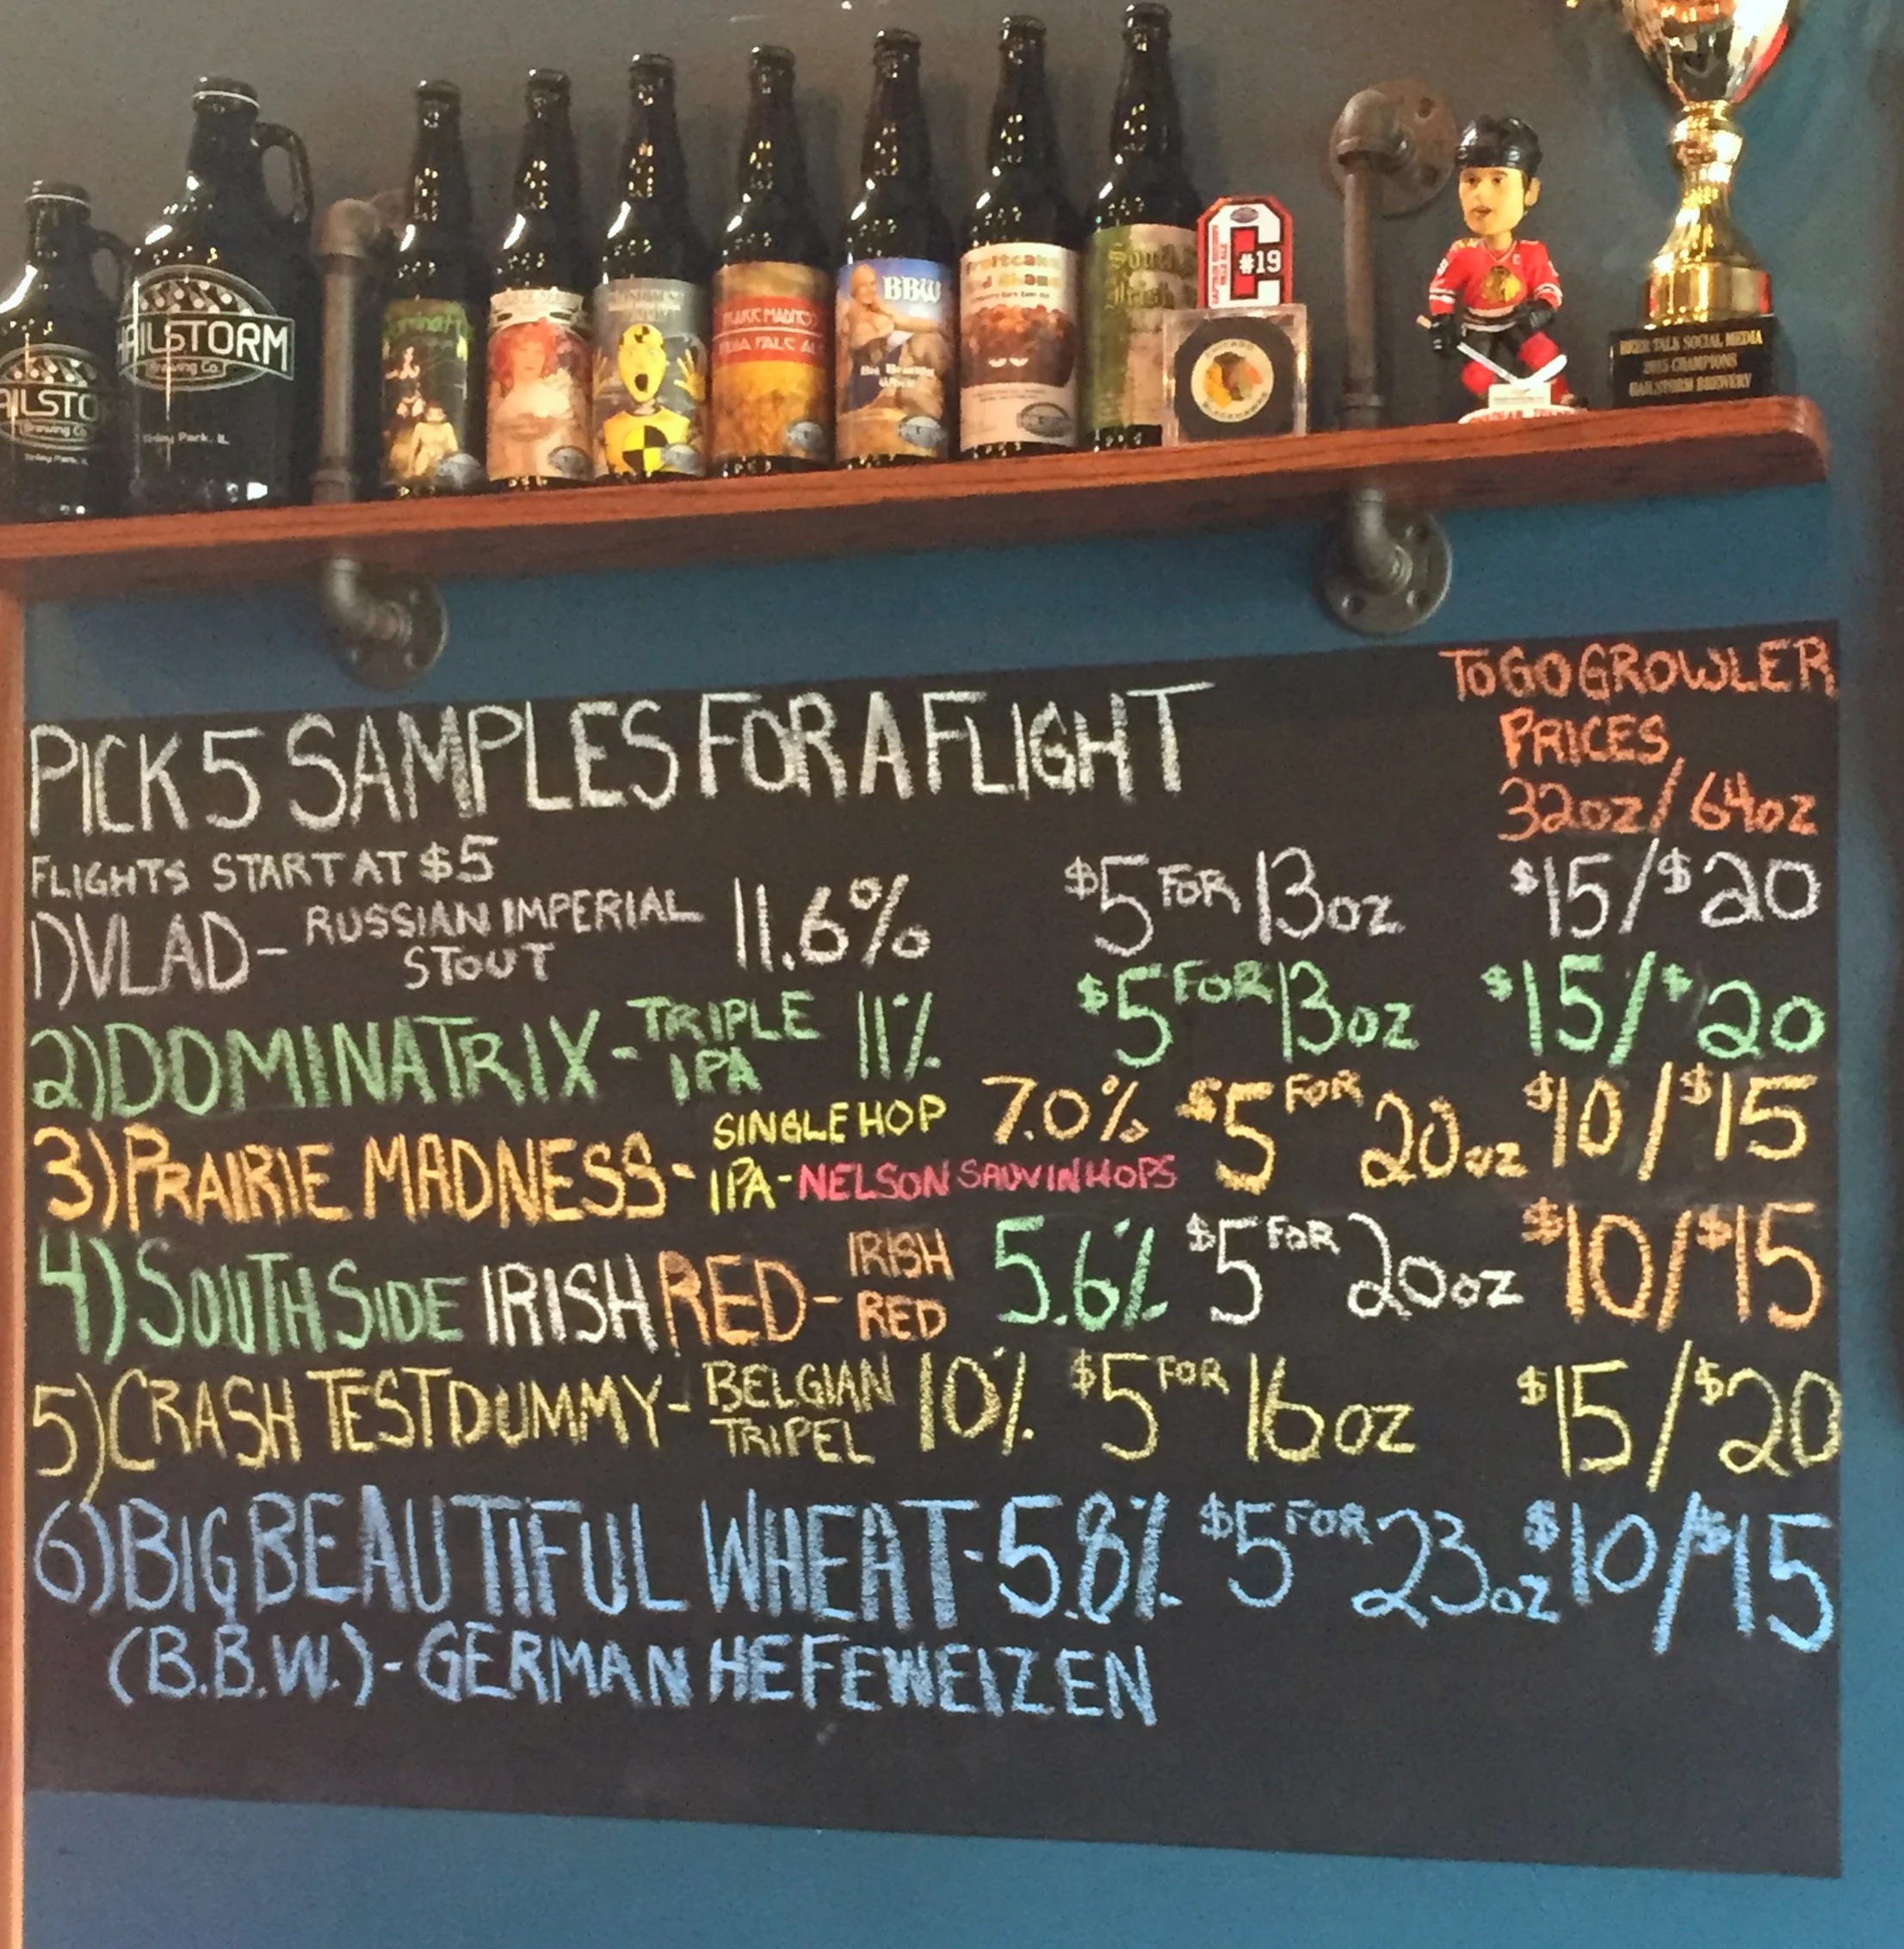 HAILSTORM
Brewing Co.
Tinley Park, IL
AILSTO
Brewing Co
Tinley Park, IL
PRAIRIE MADNESS
INDIA PALE ALE
BBW
Big Beautiful
Wheat
Fruitcake
South
Irish
C
#19
CHICAGO
BLACKHAWKS
BEER TALK SOCIAL MEDIA
2015 CHAMPIONS
HAILSTORM BREWERY
TO GO GROWLER
PRICES
32oz/64oz
PICK 5 SAMPLES FOR A FLIGHT
FLIGHTS START AT $5
1) VLAD - RUSSIAN IMPERIAL STOUT 11.6% $5 FOR 13oz $15/$20
2) DOMINATRIX - TRIPLE IPA 11% $5 FOR 13oz $15/$20
3) PRAIRIE MADNESS - SINGLE HOP IPA - NELSON SAUVIN HOPS 7.0% $5 FOR 20oz $10/$15
4) SOUTH SIDE IRISH RED - IRISH RED 5.6% $5 FOR 20oz $10/$15
5) CRASH TEST DUMMY - BELGIAN TRIPEL 10% $5 FOR 16oz $15/$20
6) BIG BEAUTIFUL WHEAT - 5.8% $5 FOR 23oz $10/$15
(B.B.W.) - GERMAN HEFEWEIZEN